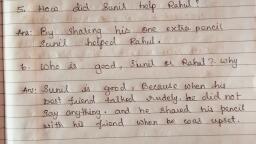 5. How did Sunil help Rahul?
Ans: By sharing his one extra pencil
Sunil helped Rahul.
6. Who is good, Sunil or Rahul? why
Ans: Sunil is good, Because when his
best friend talked rudely. he did not
say anything. and he shared his pencil
with his friend when he was upset.